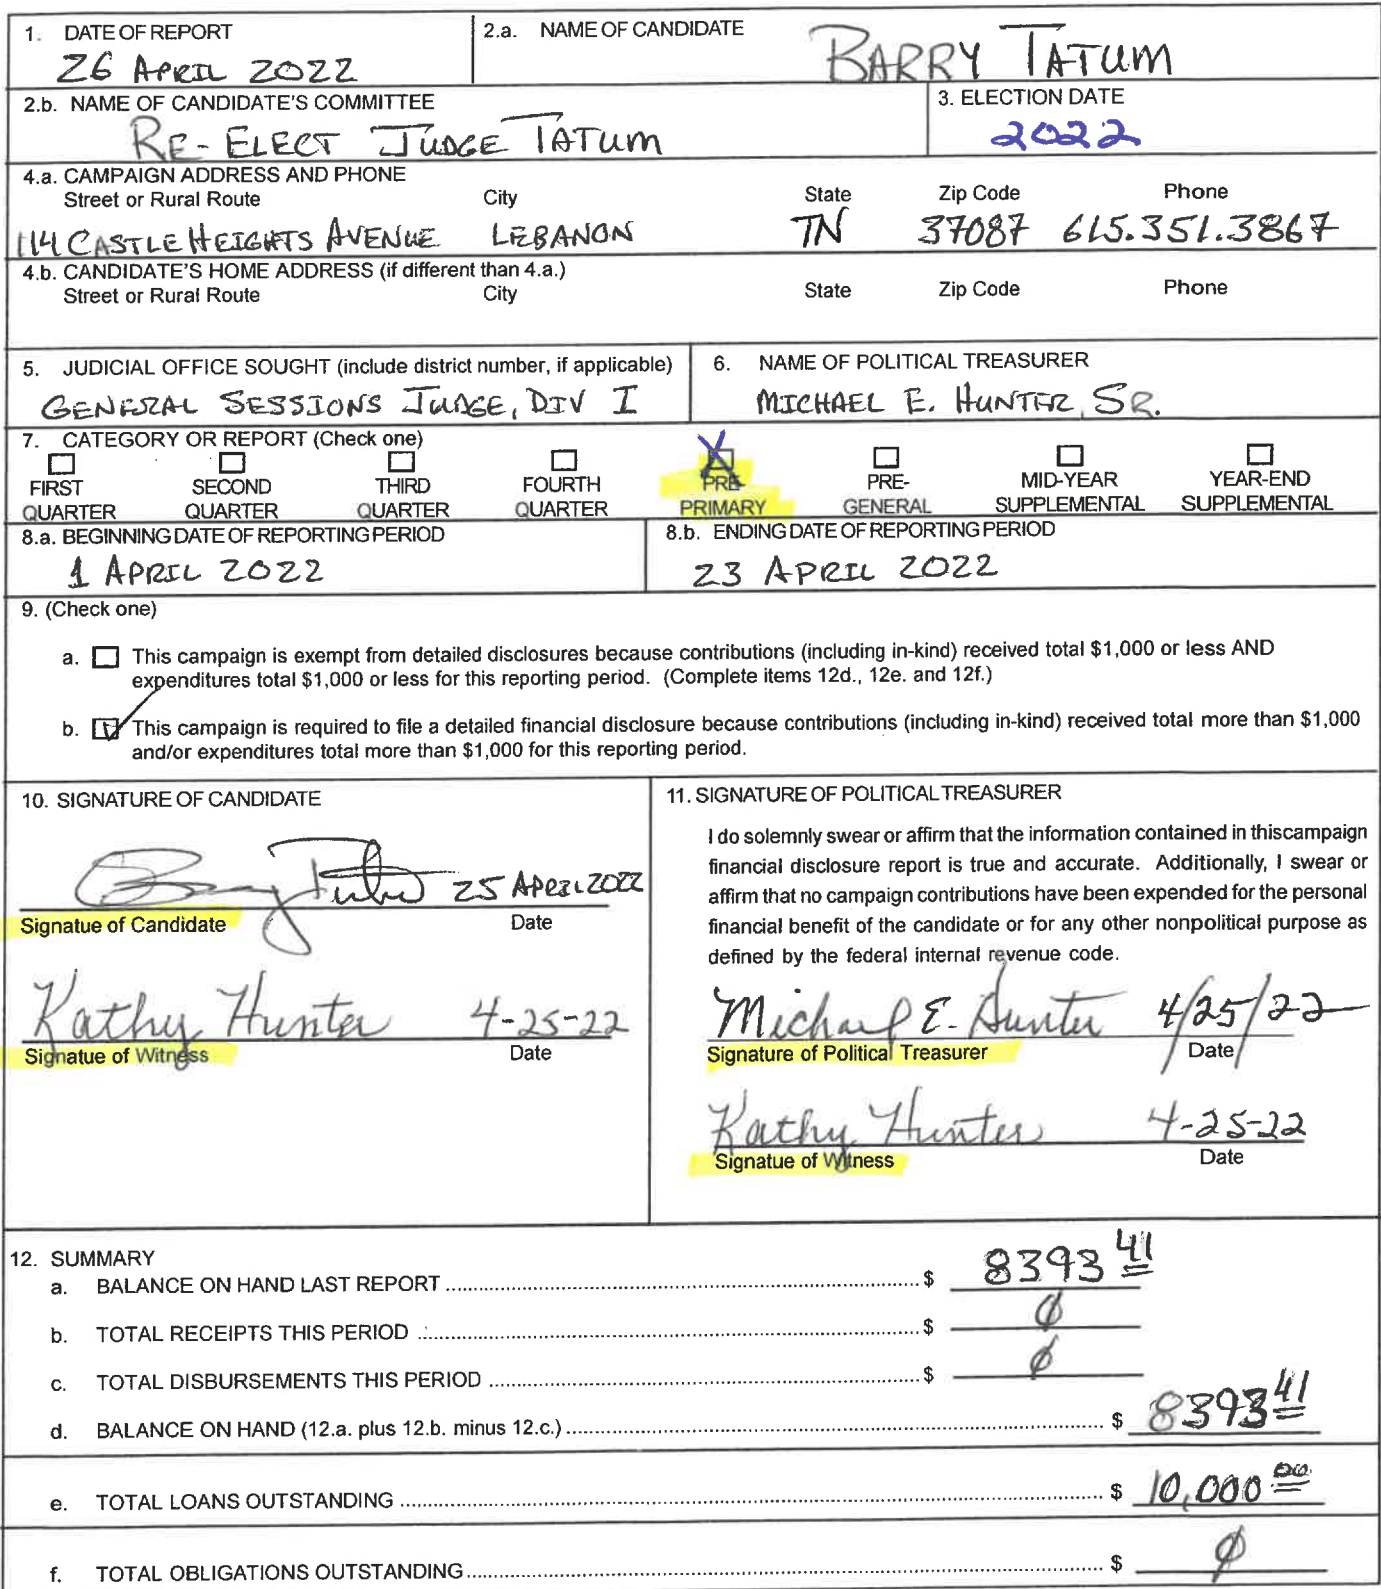 1. DATE OF REPORT
26 APRIL 2022
2.a. NAME OF CANDIDATE
BARRY TATUM
2.b. NAME OF CANDIDATE'S COMMITTEE
RE-ELECT JUDGE TATUM
3. ELECTION DATE
2022
4.a. CAMPAIGN ADDRESS AND PHONE
Street or Rural Route City State Zip Code Phone
114 CASTLE HEIGHTS AVENUE LEBANON TN 37087 615.351.3867
4.b. CANDIDATE'S HOME ADDRESS (if different than 4.a.)
Street or Rural Route City State Zip Code Phone
5. JUDICIAL OFFICE SOUGHT (include district number, if applicable)
GENERAL SESSIONS JUDGE, DIV I
6. NAME OF POLITICAL TREASURER
MICHAEL E. HUNTER, SR.
7. CATEGORY OR REPORT (Check one)
FIRST QUARTER
SECOND QUARTER
THIRD QUARTER
FOURTH QUARTER
X
PRE-PRIMARY
PRE-GENERAL
MID-YEAR SUPPLEMENTAL
YEAR-END SUPPLEMENTAL
8.a. BEGINNING DATE OF REPORTING PERIOD
1 APRIL 2022
8.b. ENDING DATE OF REPORTING PERIOD
23 APRIL 2022
9. (Check one)
a. This campaign is exempt from detailed disclosures because contributions (including in-kind) received total $1,000 or less AND
expenditures total $1,000 or less for this reporting period. (Complete items 12d., 12e. and 12f.)
b. This campaign is required to file a detailed financial disclosure because contributions (including in-kind) received total more than $1,000
and/or expenditures total more than $1,000 for this reporting period.
10. SIGNATURE OF CANDIDATE
Barry Tatum 25 APRIL 2022
Signatue of Candidate Date
Kathy Hunter 4-25-22
Signatue of Witness Date
11. SIGNATURE OF POLITICAL TREASURER
I do solemnly swear or affirm that the information contained in thiscampaign
financial disclosure report is true and accurate. Additionally, I swear or
affirm that no campaign contributions have been expended for the personal
financial benefit of the candidate or for any other nonpolitical purpose as
defined by the federal internal revenue code.
Michael E. Hunter 4/25/22
Signature of Political Treasurer Date
Kathy Hunter 4-25-22
Signatue of Witness Date
12. SUMMARY
a. BALANCE ON HAND LAST REPORT $ 8393 41
b. TOTAL RECEIPTS THIS PERIOD $ Ø
c. TOTAL DISBURSEMENTS THIS PERIOD $ Ø
d. BALANCE ON HAND (12.a. plus 12.b. minus 12.c.) $ 8393 41
e. TOTAL LOANS OUTSTANDING $ 10,000 00
f. TOTAL OBLIGATIONS OUTSTANDING $ Ø